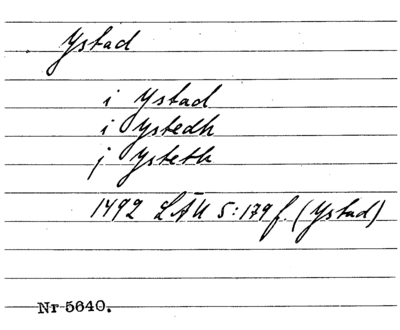 Ystad
i Ystad
i Ystedh
j Ysteth
1492 LÄU 5:179 f. (Ystad)
Nr 5640.